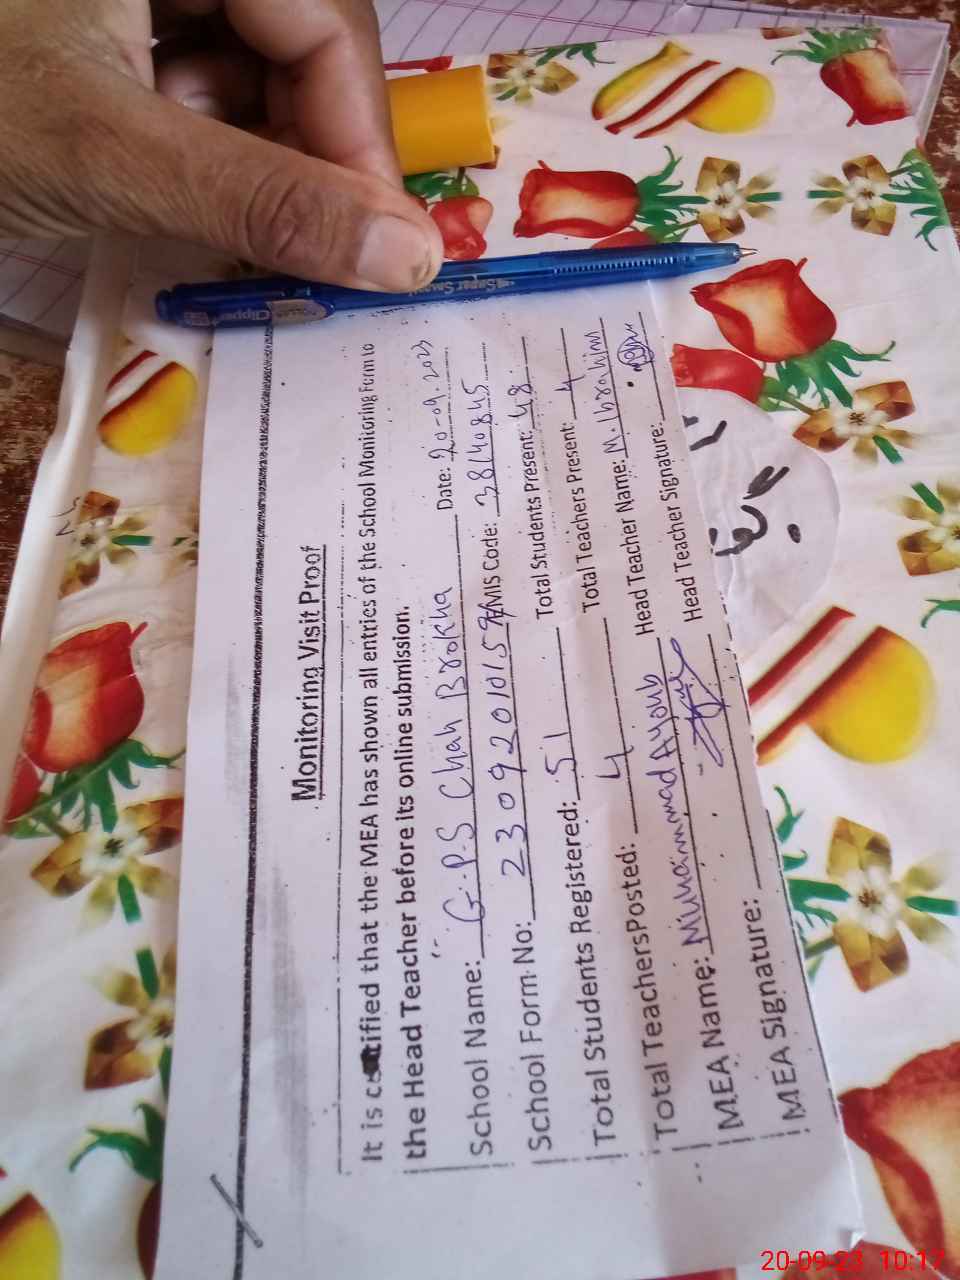 Monitoring Visit Proof
It is certified that the MEA has shown all entries of the School Monitoring Form to
the Head Teacher before its online submission.
School Name: G.P.S Chah Brokha Date: 20-09.2023
School Form No: 2309201015 EMIS Code: 38140845
Total Students Registered: 51 Total Students Present: 48
Total TeachersPosted: 4 Total Teachers Present: 4
MEA Name: Muhammad Ayoub Head Teacher Name: M. Ibrahim
MEA Signature: Head Teacher Signature:
Super Smooth
Clipper
20-09-23 10:17